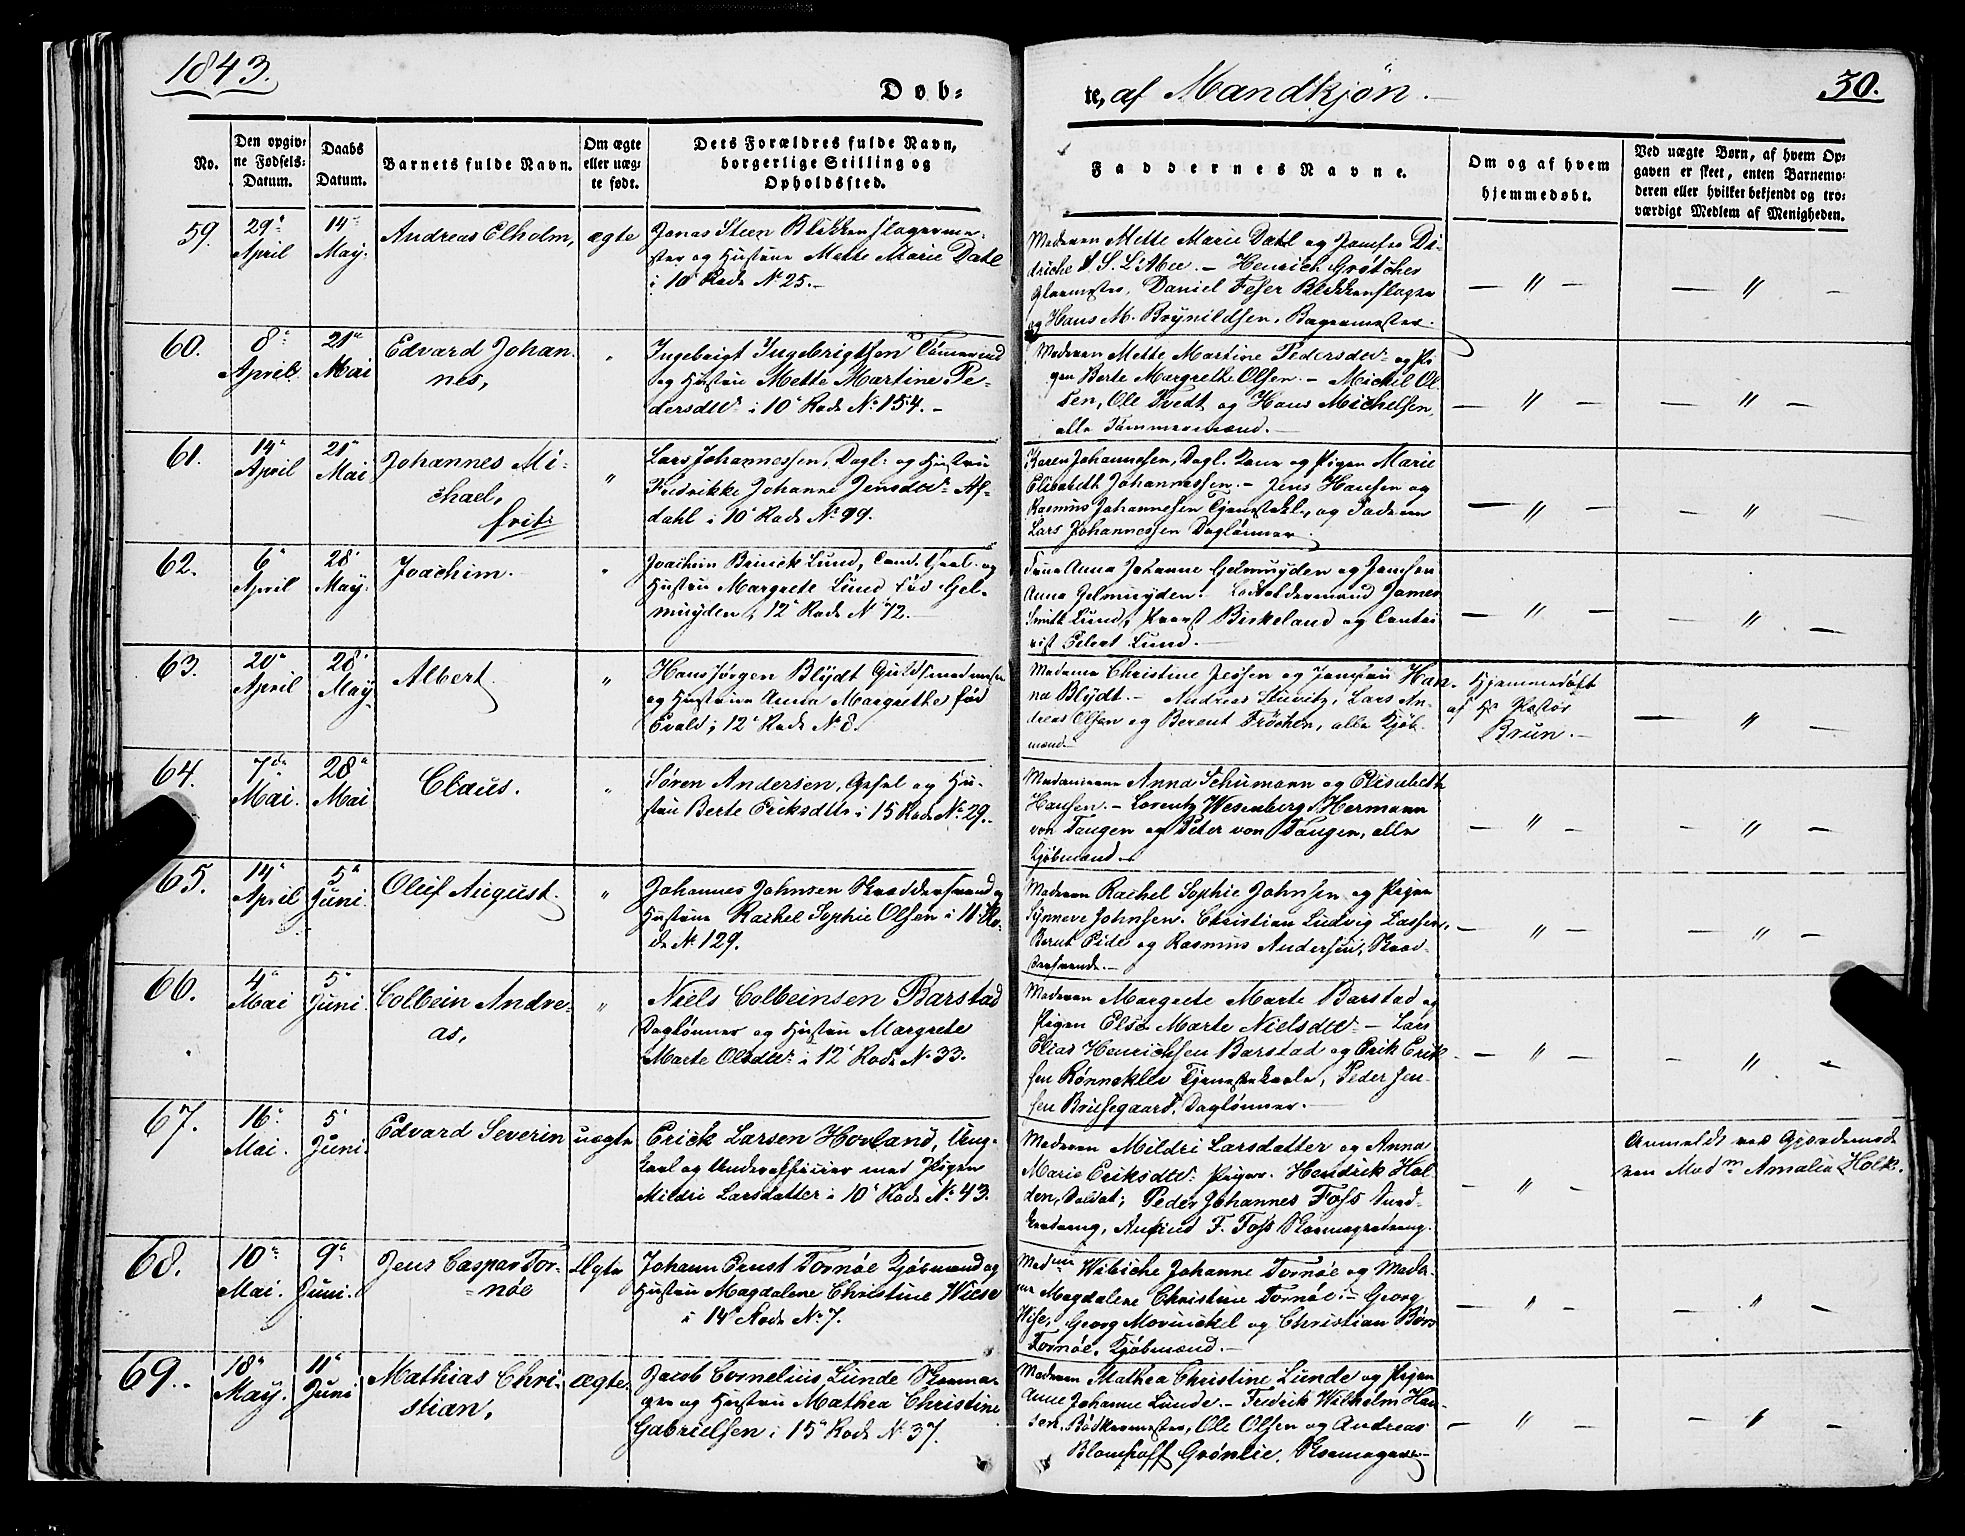 1843.
Døb-
te, af Mandkjøn.
30.
No.
Den opgiv-
ne Fødsels-
Datum.
Daabs
Datum.
Barnets fulde Navn.
Om ægte
eller uæg-
te født.
Dets Forældres fulde Navn,
borgerlige Stilling og
Opholdssted.
Faddernes Navne.
Om og af hvem
hjemmedøbt.
Ved uægte Børn, af hvem Op-
gaven er skeet, enten Barnemo-
deren eller hvilket bekjendt og tro-
værdigt Medlem af Menigheden.
59.
29
April
14
May.
Andreas Elholm,
ægte
Jonas Steen Blikkenslagerme-
ster og Hustrue Mette Marie Dahl
i 10 Rode No 25.
Moderen Mette Marie Dahl og Jomfru Di-
driche
Henrich Grötcher
Glarmester, Daniel Feser Blikkenslager
og Hans M. Brynildsen, Bagermester.
60.
8
April
21
Mai
Edvard Johan-
nes,
"
Ingebrigt Ingebrigtsen Tømmermd
og Hustru Mette Martine Pe-
dersdtr i 10 Rode No 154.
Moderen Mette Martine Pedersdtr og Pi-
gen Berte Margrethe Olsen. - Mickel Ol-
sen, Ole Tvedt og Hans Michelsen,
alle Tømmermænd.
61.
14
April
21
Mai
Johannes Mi-
chael,
frit
"
Lars Johannessen, Dagl. og Hustru
Fredrikke Johanne Jensdtr Af-
dahl i 10 Rode No 99.
Karen Johannesen, Dagl. Kone og Pigen Marie
Elisabeth Johannessen. - Jens Hansen og
Rasmus Johannesen Tjenestekarl, og Faderen
Lars Johannessen Daglønner.
62.
6
April
28
May.
Joachim.
"
Joachim Brinck Lund, Cand. theol. og
Hustru Margrete Lund fød Gel-
muyden, 12 Rode No 72.
Frue Anna Johanne Gelmuyden og Jomfru
Anna Gelmuyden. Lodsoldermand James
Smith Lund, Provst Birkeland og Contoi-
rist Lund.
63.
20
April
28
May.
Albert.
"
Hans Jørgen Blÿdt Guldsmedmester
og Hustrue Anna Margrethe fød
Evald, 12 Rode No 8.
Madame Christine Jessen og Jomfru Han-
na Blÿdt. - Andreas Stüvitz, Lars An-
dreas Olsen og Berent Frøchen, alle Kjøb-
mænd.
Hjemmedøbt
af Hr Pastor
Brun.
64.
7de
Mai.
28
Mai
Claus.
"
Søren Andersen, Gesel og Hu-
stru Berte Eriksdtr i 15 Rode No 29.
Madamerne Anna Schumann og Elisabeth
Hansen. - Lorentz Wesenberg, Hermann
von Tangen og Peter von Tangen, alle
Kjøbmænd.
65.
14
April
5
Juni
Oluf August.
"
Johannes Johnsen Skræddersvend og
Hustrue Rachel Sophie Olsen i 11 Ro-
de No 129.
Moderen Rachel Sophie Johnsen og Pigen
Synneve Johnsen. Christian Ludvig Lassen,
Berent Eide og Rasmus Andersen, Skræd-
dersvende.
66.
4
Mai
5
Juni.
Colbein Andre-
as,
"
Niels Colbeinsen Barstad
Daglønner og Hustru Margrete
Marte Olsdtr i 12 Rode No 33.
Moderen Margrete Marte Barstad og
Pigen Else Marte Nielsdtr - Lars
Elias Henrichsen Barstad og Erik Erik-
sen Rønneklev Tjenestekarle, Peder Jen-
sen Bruesgaard, Daglønner.
67.
16
Mai.
5
Juni.
Edvard Severin
uægte
Erick Larsen Hovland, Ung-
karl og Underofficier med Pigen
Mildri Larsdatter i 10 Rode No 43.
Moderen Mildri Larsdatter og Anna
Marie Eriksdtr. Piger. Hendrik Hol-
den, Soldat, Peder Johannes Foss Sned-
kerdreng, F. Foss Skomagerdreng.
Anmeldt ved Gjordemode-
ren Madm Amalia Holk.
68.
10
Mai.
9
Juni.
Jens Caspar Tor-
nøe
Ægte
Johann Ernst Tornøe Kjøbmand og
Hustru Magdalene Christine Wiese
i 14 Rode No 7.
Madme Wibiche Johanne Tornøe og Mada-
me Magdalene Christine Tornøe. - Georg
Wise, Georg Mowinckel og Christian Børs
Tornøe, Kjøbmænd.
69.
18
May.
11
Juni
Mathias Chri-
stian,
ægte.
Jacob Cornelius Lunde Skoma-
ger og Hustru Mathea Christine
Gabrielsen i 15 Rode No 37.
Moderen Mathea Christine Lunde og Pigen
Anne Johanne Lunde. - Fredrik Wilhelm Han-
sen, Bødkermester, Ole Olsen og Andreas
Blomhoff Grønlie, Skomagere